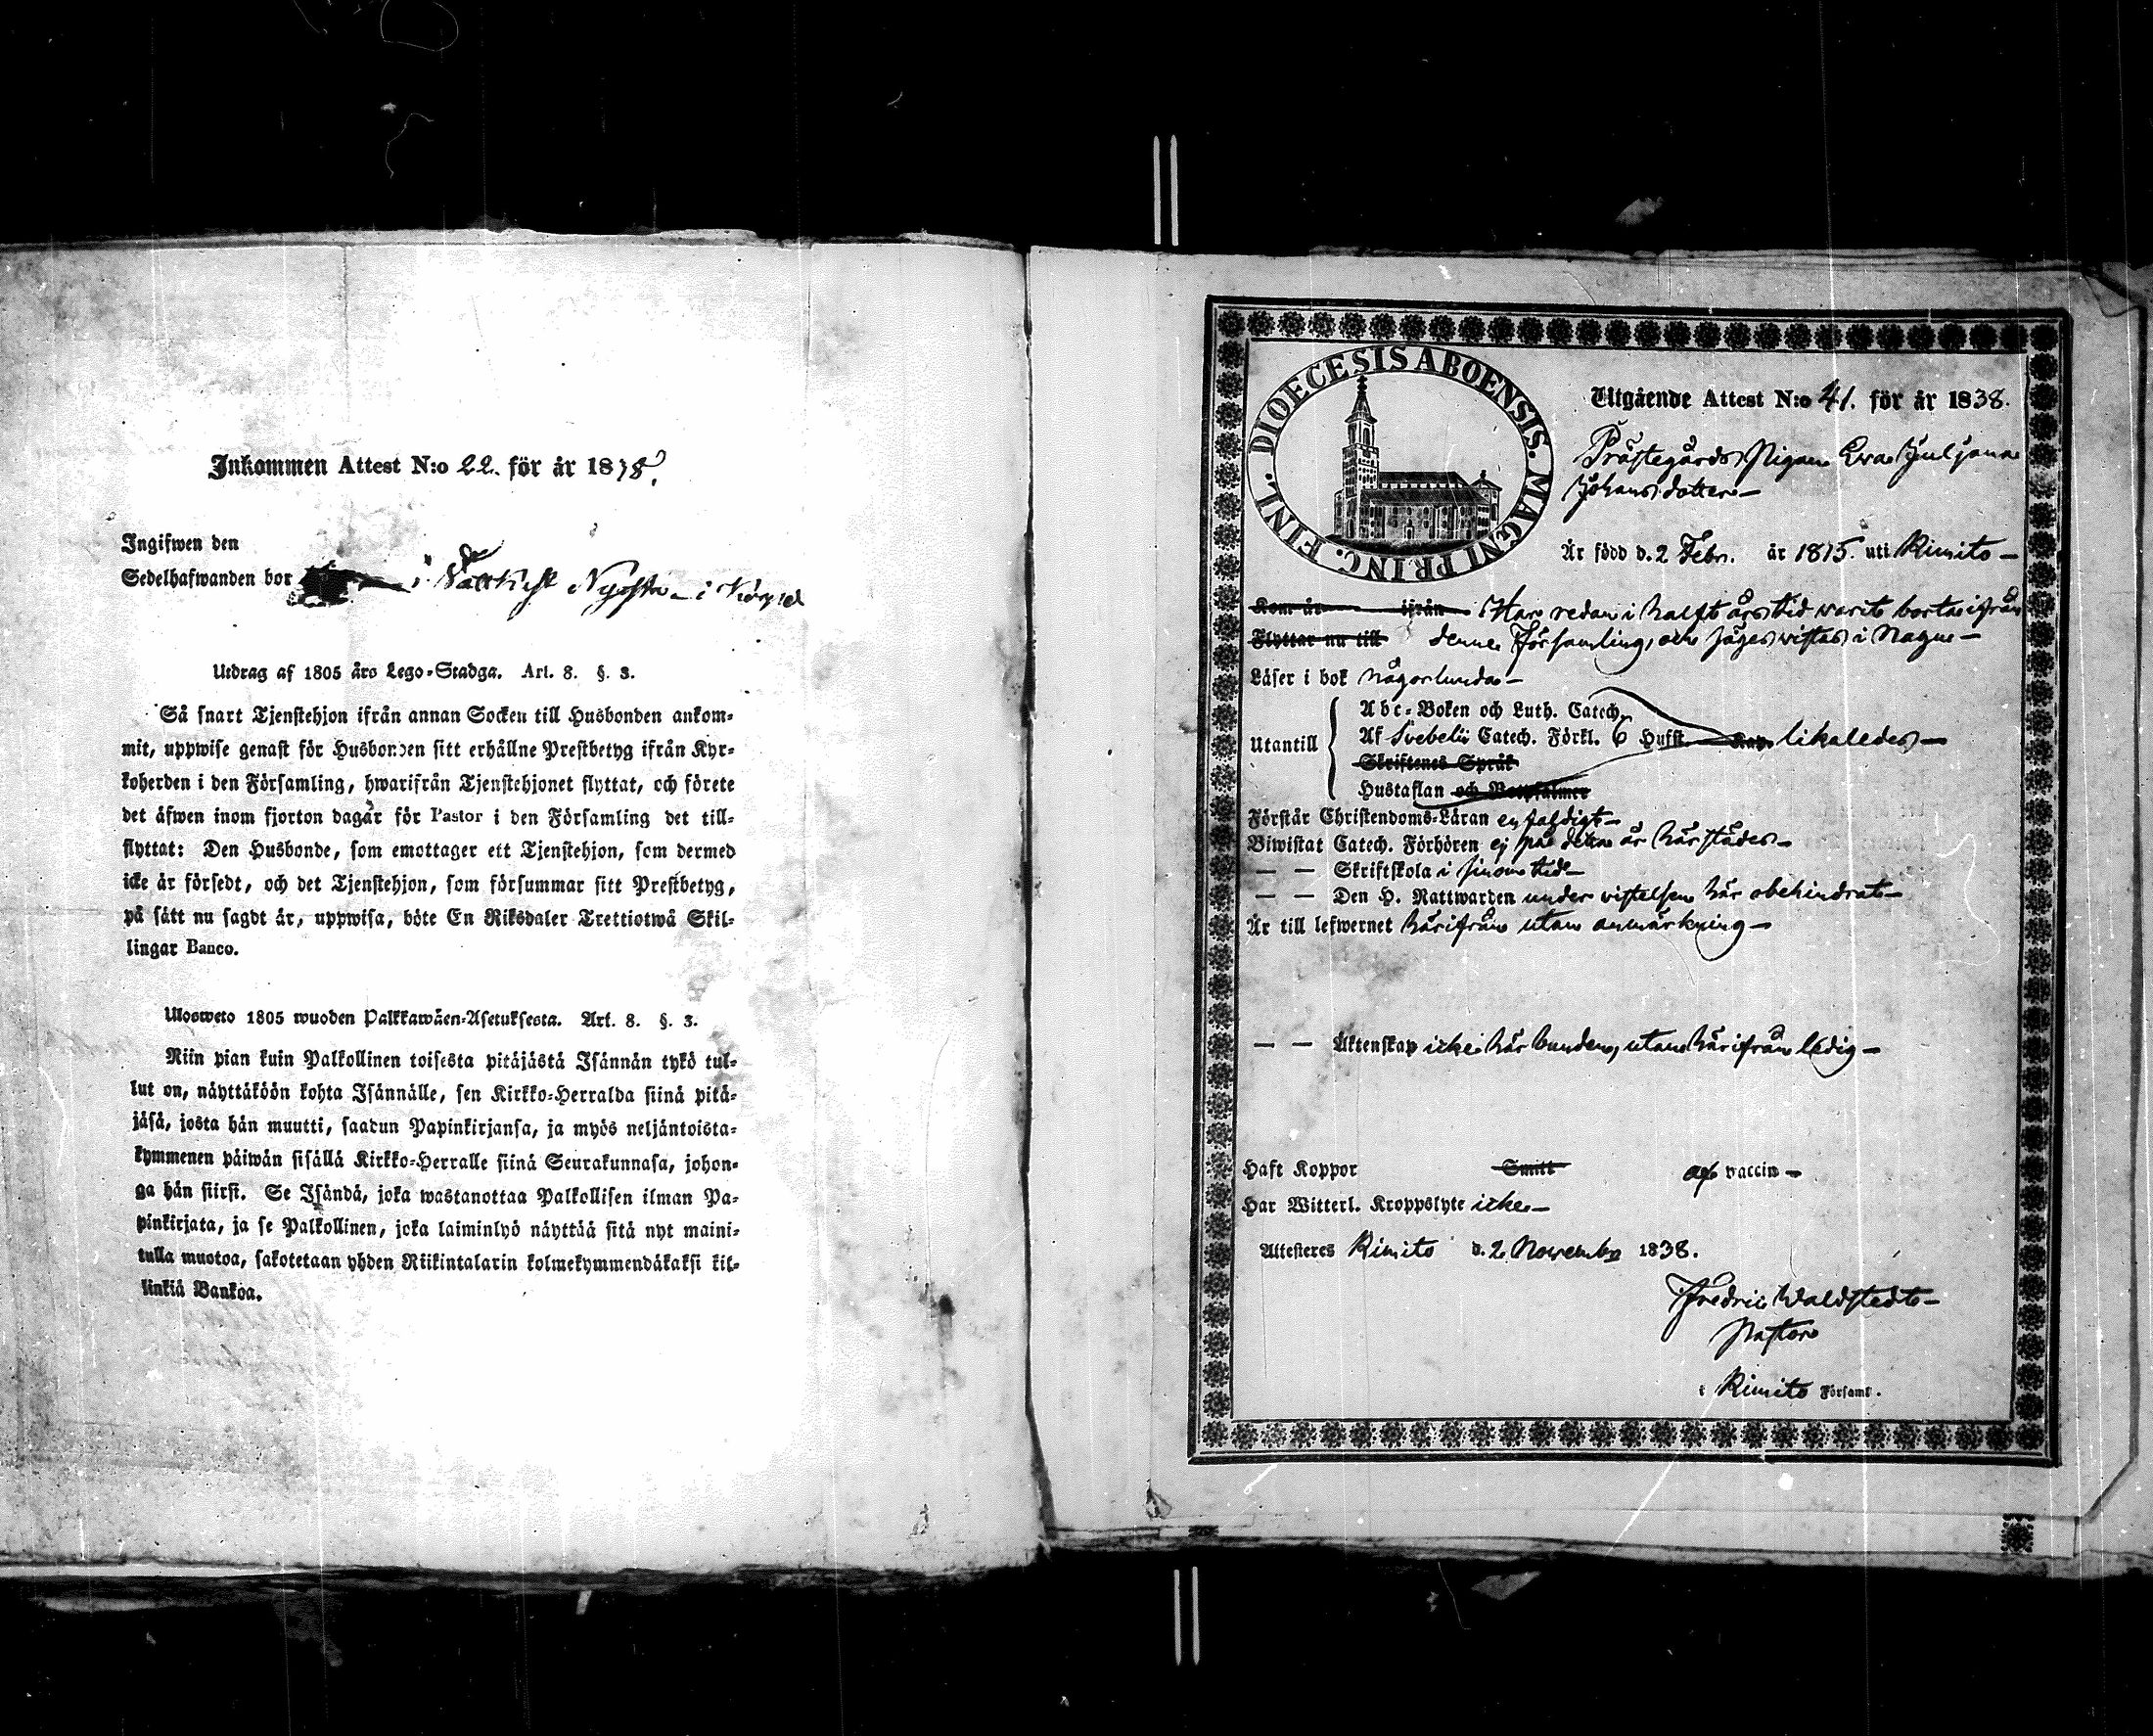 Inkommen Attest N:o 22. för år 1838.
Ingifwen den
Sedelhafwanden bor i Nystu i
Utdrag af 1805 års Lego-Stadga. Art. 8. §. 3.
Så snart Tjenstehjon ifrån annan Socken till Husbonden ankom-
mit, uppwise genast för Husbonden sitt erhållne Prestbetyg ifrån Kyr-
koherden i den Församling, hwarifrån Tjenstehjonet flyttat, och förete
det äfwen inom fjorton dagar för Pastor i den Församling det till-
flyttat: Den Husbonde, som emottager ett Tjenstehjon, som dermed
icke är försedt, och det Tjenstehjon, som försummar sitt Prestbetyg,
på sätt nu sagdt är, uppwisa, böte En Riksdaler Trettiotwå Skil-
lingar Banco.
Ulosweto 1805 wuoden Palkkawäen-Asetuksesta. Art. 8. §. 3.
Niin pian kuin Palkollinen toisesta pitäjästä Isännän tykö tul-
lut on, näyttäköön kohta Isännälle, sen Kirkko-Herralda siinä pitä-
jäsä, josta hän muutti, saadun Papinkirjansa, ja myös neljäntoista-
kymmenen päiwän sisällä Kirkko-Herralle siinä Seurakunnasa, johon-
ga hän siirsi. Se Isändä, joka wastanottaa Palkollisen ilman Pa-
pinkirjata, ja se Palkollinen, joka laiminlyö näyttää sitä nyt maini-
tulla muotoa, sakotetaan yhden Riikintalarin kolmekymmendäkaksi kil-
linkiä Bankoa.
DIOECESIS ABOENSIS. MAGNI PRINC. FINL.
Utgående Attest N:o 41. för år 1838.
Prästegårds Pigan Eva Juljana
Johansdotter
Är född d. 2 Febr. år 1815. uti Rimito
Kom år ifrån Har redan i halft års tid warit borta ifrån
Flyttar nu till denna Församling, och säges wistas i Nagu
Läser i bok någorlunda
Utantill
Abc-Boken och Luth. Catech.
Af Svebelii Catech. Förkl. 6 Hufst. Kap. likaledes
Skriftenes Språk
Hustaflan och Botpsalmer
Förstår Christendoms-Läran enfaldigt
Biwistat Catech. Förhören ej på detta år härstädes
— — Skriftskola i sinom tid
— — Den H. Nattwarden under vistelsen här obehindrat
Är till lefwernet härifrån utan anmärkning
— — Äktenskap icke här bunden, utan härifrån ledig
Haft Koppor Smitt af vaccin
Har Witterl. Kroppslyte icke
Attesteres Rimito d. 2 November 1838.
Fredric Waldstedt
Pastor
i Rimito Församl.